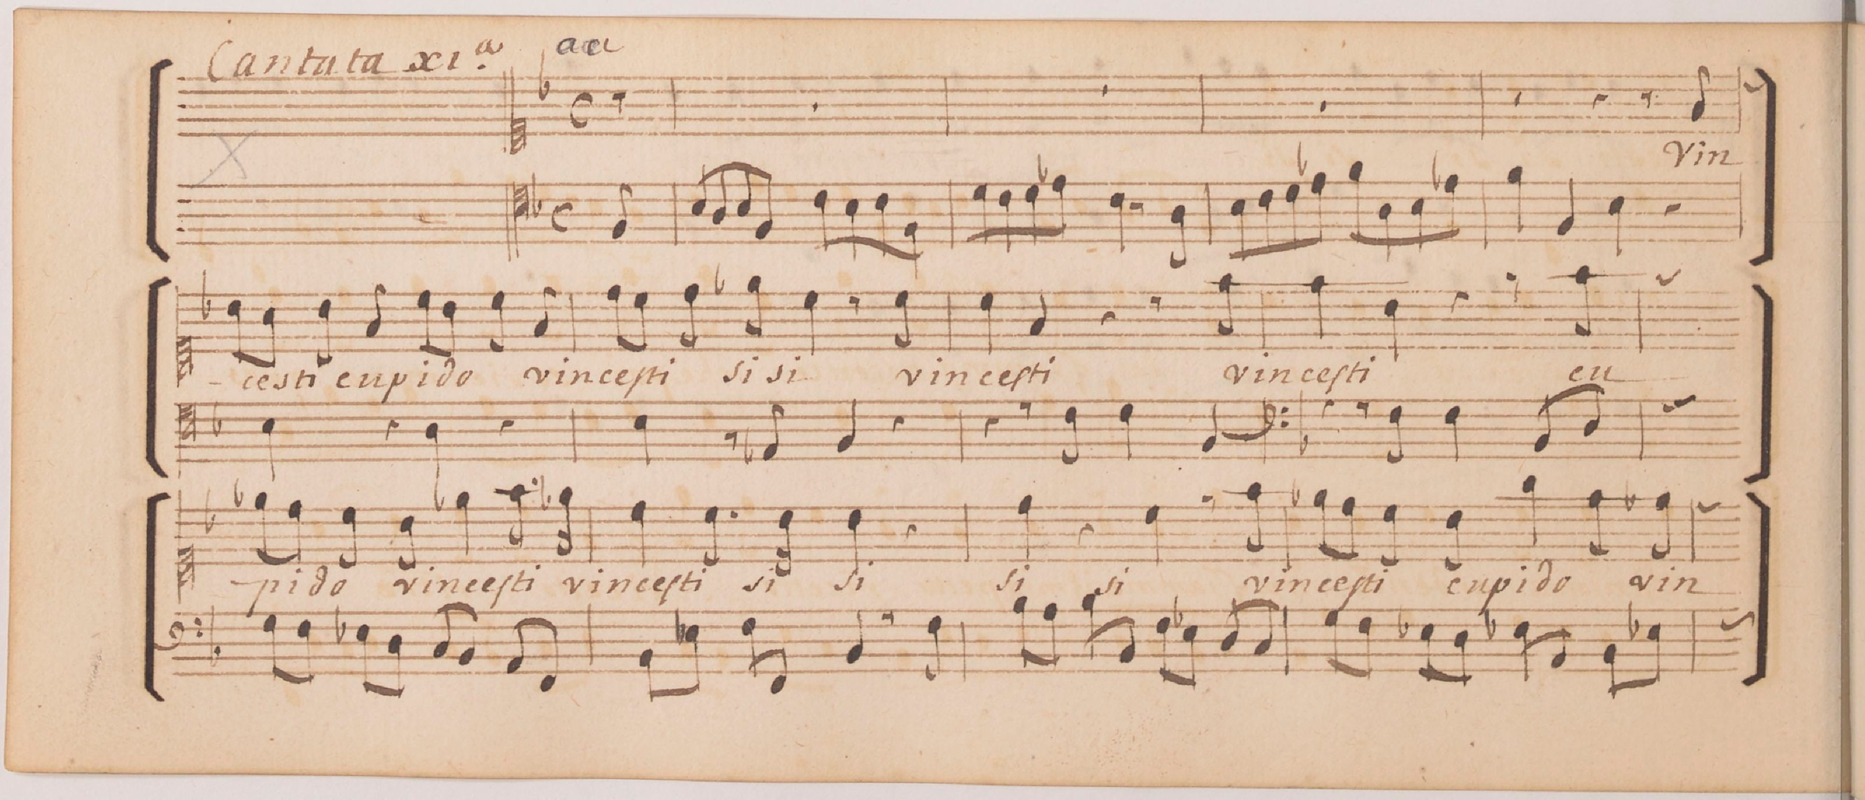 Cantata xi.a
Vin
-cesti cupido vincesti si si vincesti vincesti cu
-pido vincesti vincesti si si si si vincesti cupido vin